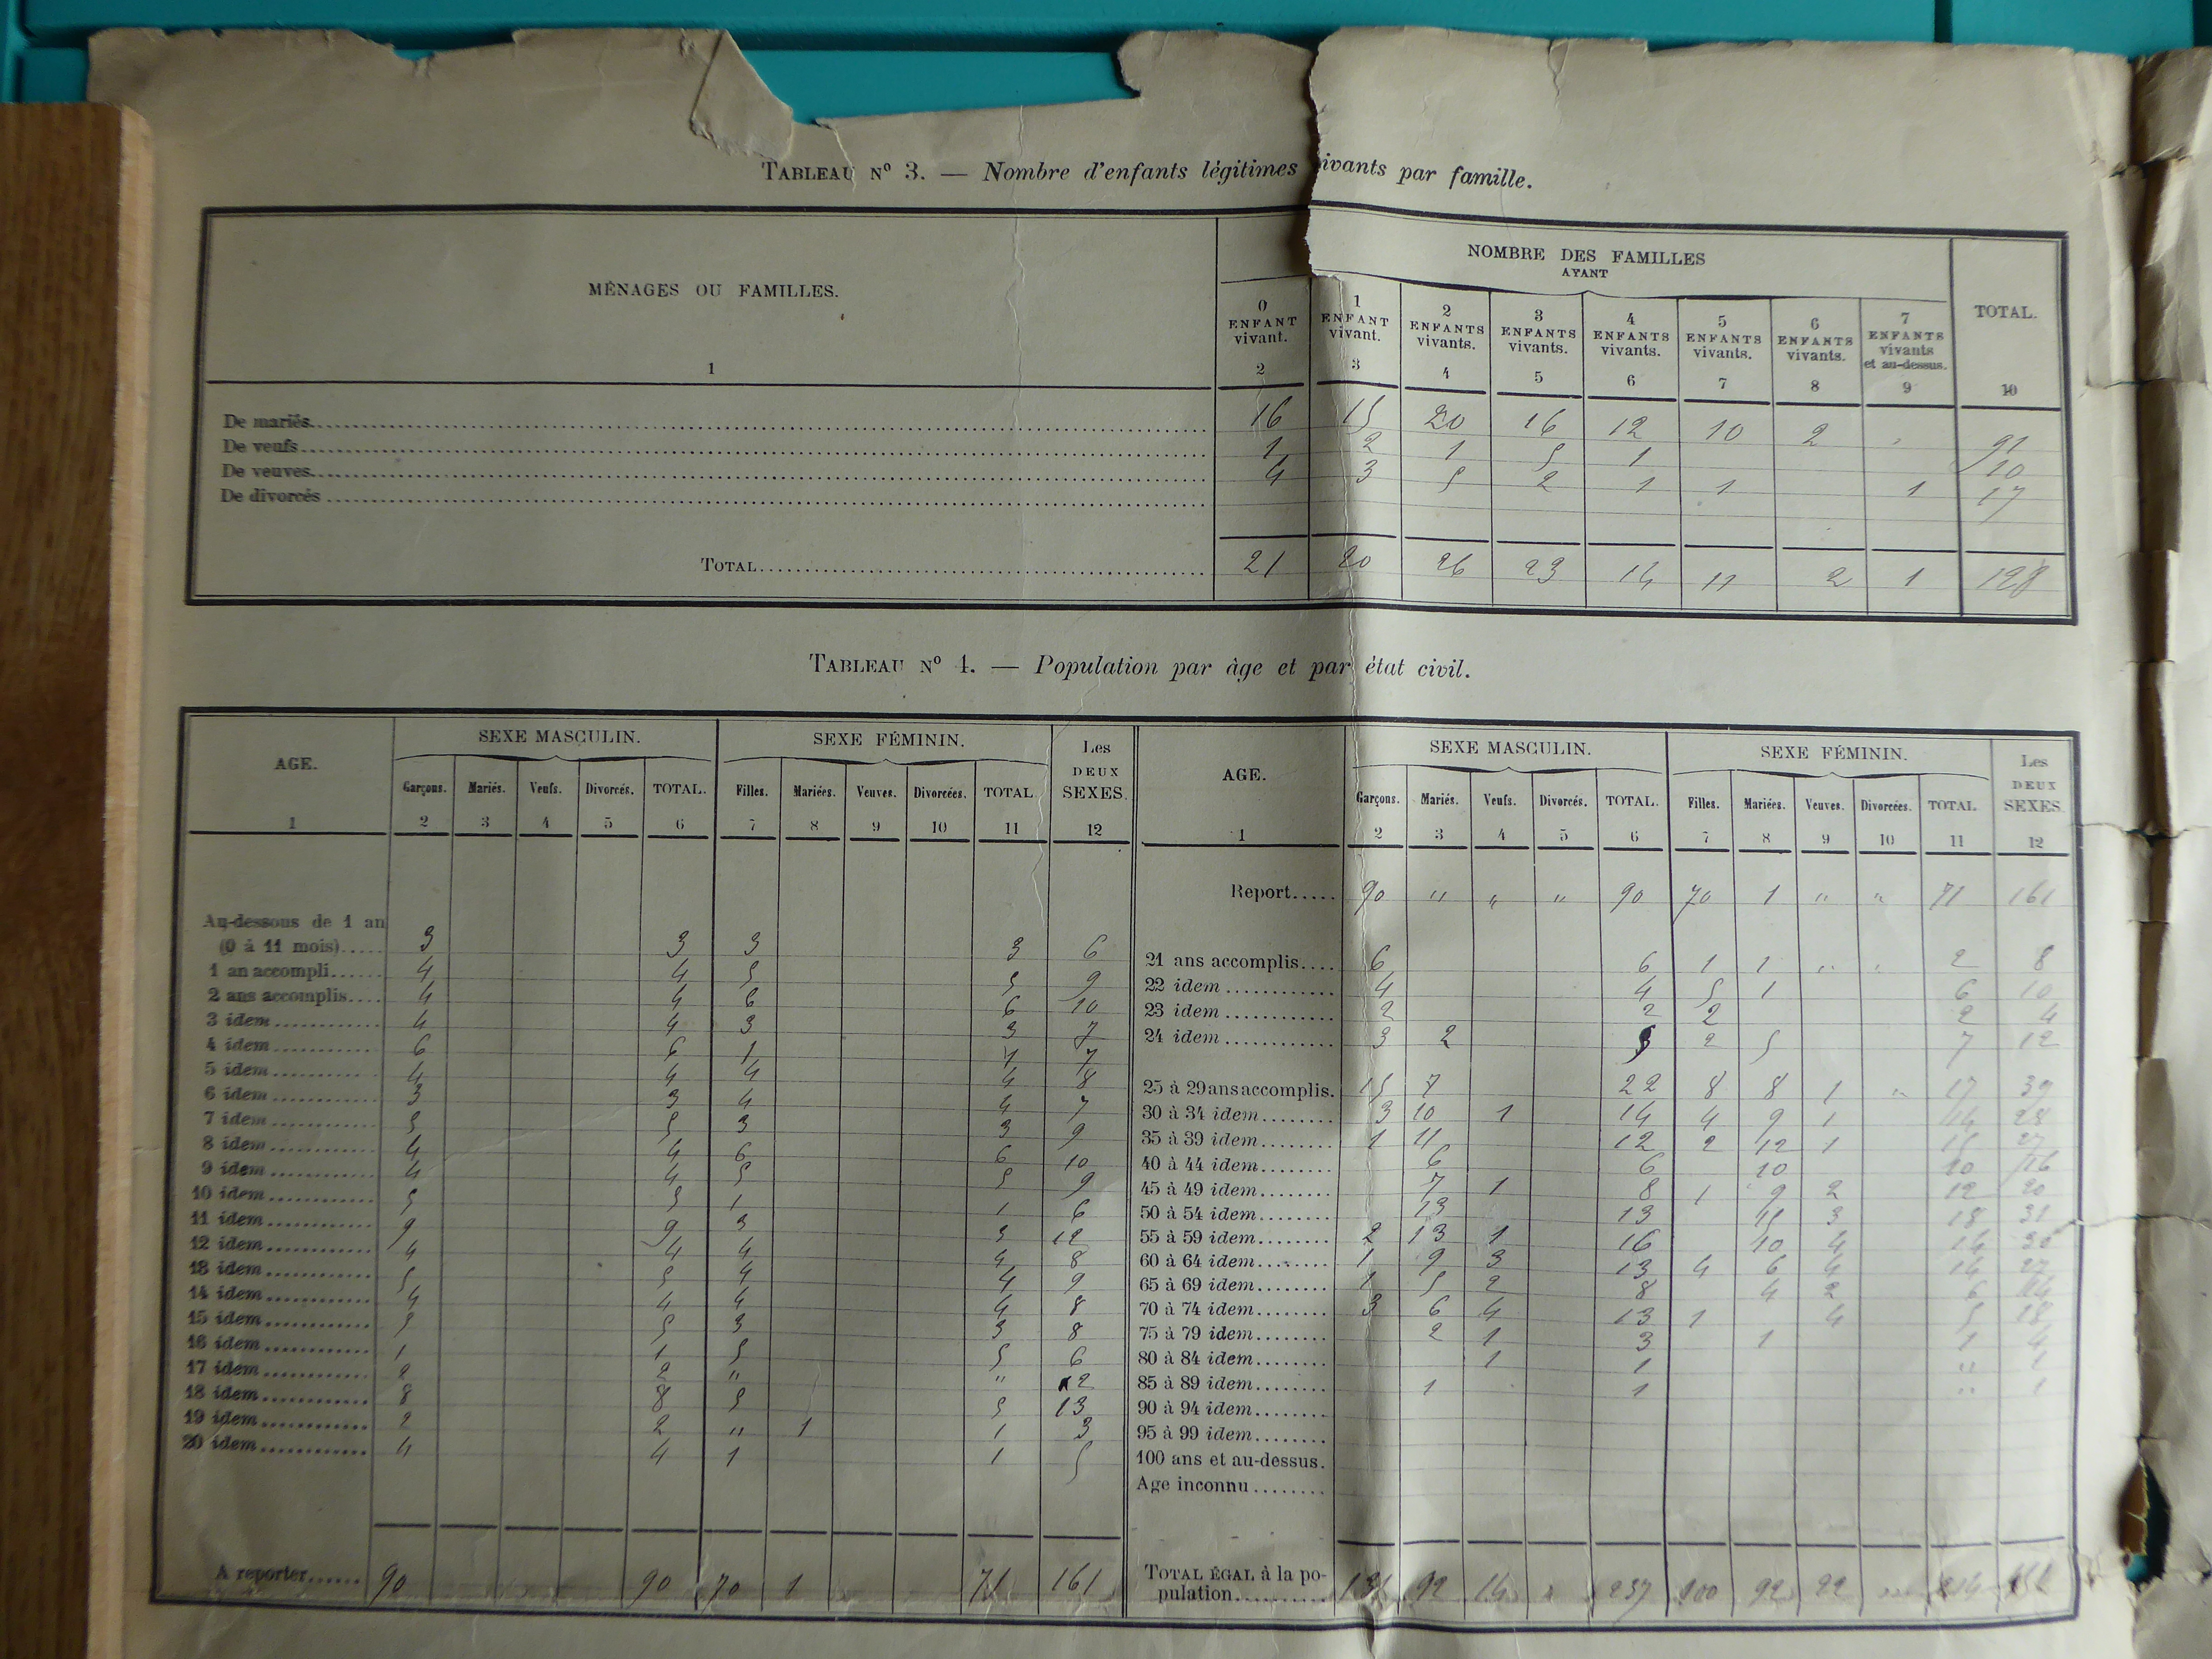 TABLEAU Nº 3. — Nombre d'enfants légitimes ivants par famille.
MÉNAGES OU FAMILLES. NOMBRE DES FAMILLES AYANT TOTAL.
0 ENFANT vivant. 1 ENFANT vivant. 2 ENFANTS vivants. 3 ENFANTS vivants. 4 ENFANTS vivants. 5 ENFANTS vivants. 6 ENFANTS vivants. 7 ENFANTS vivants et au-dessus.
1 2 3 4 5 6 7 8 9 10
De mariés 16 15 20 16 12 10 2 91
De veufs 1 2 1 5 1 10
De veuves 4 3 5 2 1 1 1 17
De divorcés
TOTAL 21 20 26 23 14 11 2 1 128
TABLEAU Nº 4. — Population par âge et par état civil.
AGE. SEXE MASCULIN. SEXE FÉMININ. Les DEUX SEXES.
Garçons. Mariés. Veufs. Divorcés. TOTAL. Filles. Mariées. Veuves. Divorcées. TOTAL
1 2 3 4 5 6 7 8 9 10 11 12
Au-dessous de 1 an
(0 à 11 mois) 3 3 3 3 6
1 an accompli 4 4 5 5 9
2 ans accomplis 4 4 6 6 10
3 idem 4 4 3 3 7
4 idem 6 6 1 1 7
5 idem 4 4 4 4 8
6 idem 3 3 4 4 7
7 idem 5 5 3 3 9
8 idem 4 4 6 6 10
9 idem 4 4 5 5 9
10 idem 5 5 1 1 6
11 idem 9 9 3 3 12
12 idem 4 4 4 4 8
13 idem 5 5 4 4 9
14 idem 4 4 4 4 8
15 idem 5 5 3 3 8
16 idem 1 1 5 5 6
17 idem 2 2 " " 2
18 idem 8 8 5 5 13
19 idem 2 2 " 1 1 3
20 idem 4 4 1 1 5
A reporter 90 90 70 1 71 161
AGE. SEXE MASCULIN. SEXE FÉMININ. Les DEUX SEXES.
Garçons. Mariés. Veufs. Divorcés. TOTAL. Filles. Mariées. Veuves. Divorcées. TOTAL
1 2 3 4 5 6 7 8 9 10 11 12
Report 90 " " " 90 70 1 " " 71 161
21 ans accomplis 6 6 1 1 " " 2 8
22 idem 4 4 5 1 6 10
23 idem 2 2 2 2 4
24 idem 3 2 5 2 5 7 12
25 à 29 ans accomplis. 15 7 22 8 8 1 " 17 39
30 à 34 idem 3 10 1 14 4 9 1 14 28
35 à 39 idem 1 11 12 2 12 1 15 27
40 à 44 idem 6 6 10 10 16
45 à 49 idem 7 1 8 1 9 2 12 20
50 à 54 idem 13 13 15 3 18 31
55 à 59 idem 2 13 1 16 10 4 14
60 à 64 idem 1 9 3 13 4 6 4 14 27
65 à 69 idem 1 5 2 8 4 2 6 14
70 à 74 idem 3 6 4 13 1 4 5 18
75 à 79 idem 2 1 3 1 1 4
80 à 84 idem 1 1 " 1
85 à 89 idem 1 1 " 1
90 à 94 idem
95 à 99 idem
100 ans et au-dessus.
Age inconnu
TOTAL ÉGAL à la po-
pulation 131 92 14 " 237 100 92 22 214